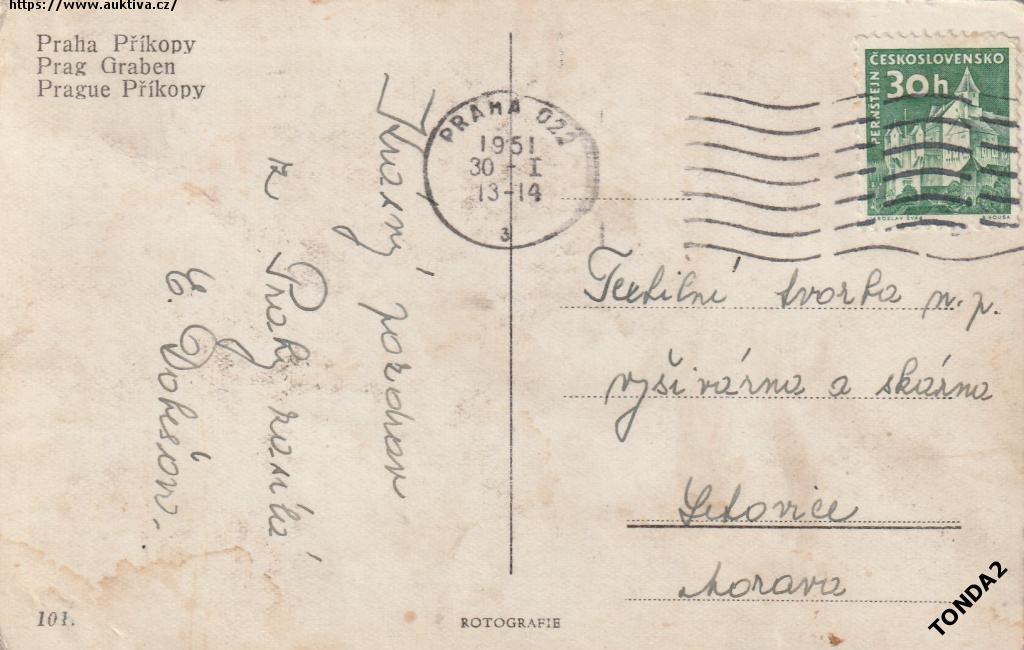 https://www.auktiva.cz/
Praha Příkopy
Prag Graben
Prague Příkopy
Krásný pozdrav
z Prahy zasílá
Dohesova.
PRAHA 022
1951
30-I
13-14
3
ČESKOSLOVENSKO
30h
PERNŠTEJN
Textilní tvorba n.p.
vyšivárna a skásna
Letovice
Morava
101.
ROTOGRAFIE
TONDA2